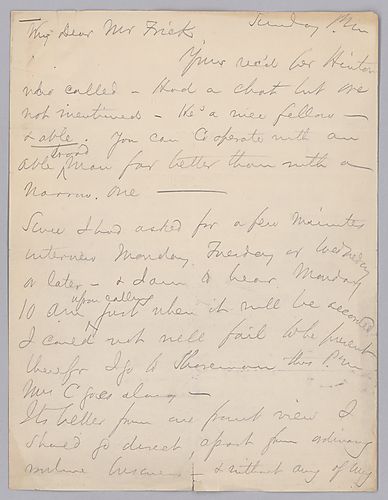 My Dear Mr Frick Sunday P.m
Yours rec'd per Hinton
who called – Had a chat but we
not mentioned – He's a nice fellow –
& able. You can Cooperate with an
able broad Man far better than with a
narrow one ———
Since I had asked for a few minutes
interview Monday, Tuesday or Wednesday
or later – & I am to hear Monday
10 am upon calling just when it will be accorded
I could not well fail to be present
therefor I go to this P.m
Mrs C goes along –
Its better from our point view I
should go direct, apart from ordinary
routine business – & without any of my